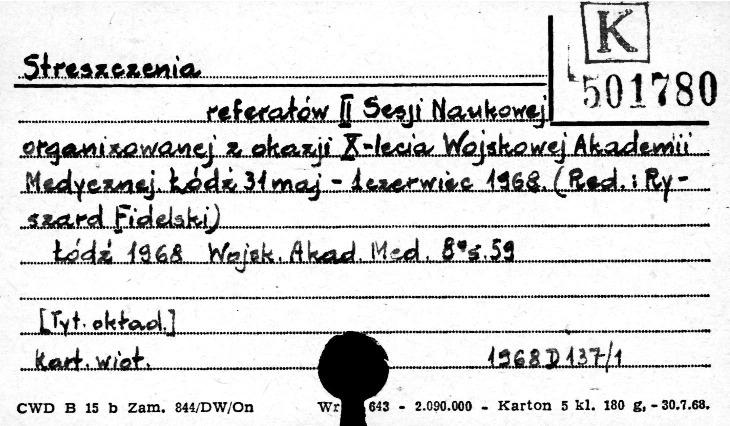 K
501780
Streszczenia
referatów II Sesji Naukowej
organizowanej z okazji X-lecia Wojskowej Akademii
Medycznej. Łódź 31 maj - 1 czerwiec 1968. (Red.: Ry-
szard Fidelski)
Łódź 1968 Wojsk. Akad. Med. 8° s. 59
[Tyt. okład.]
Kart. wiot. 1968 D 137/1
CWD B 15 b Zam. 844/DW/On 643 - 2.090.000 - Karton 5 kl. 180 g. - 30.7.68.